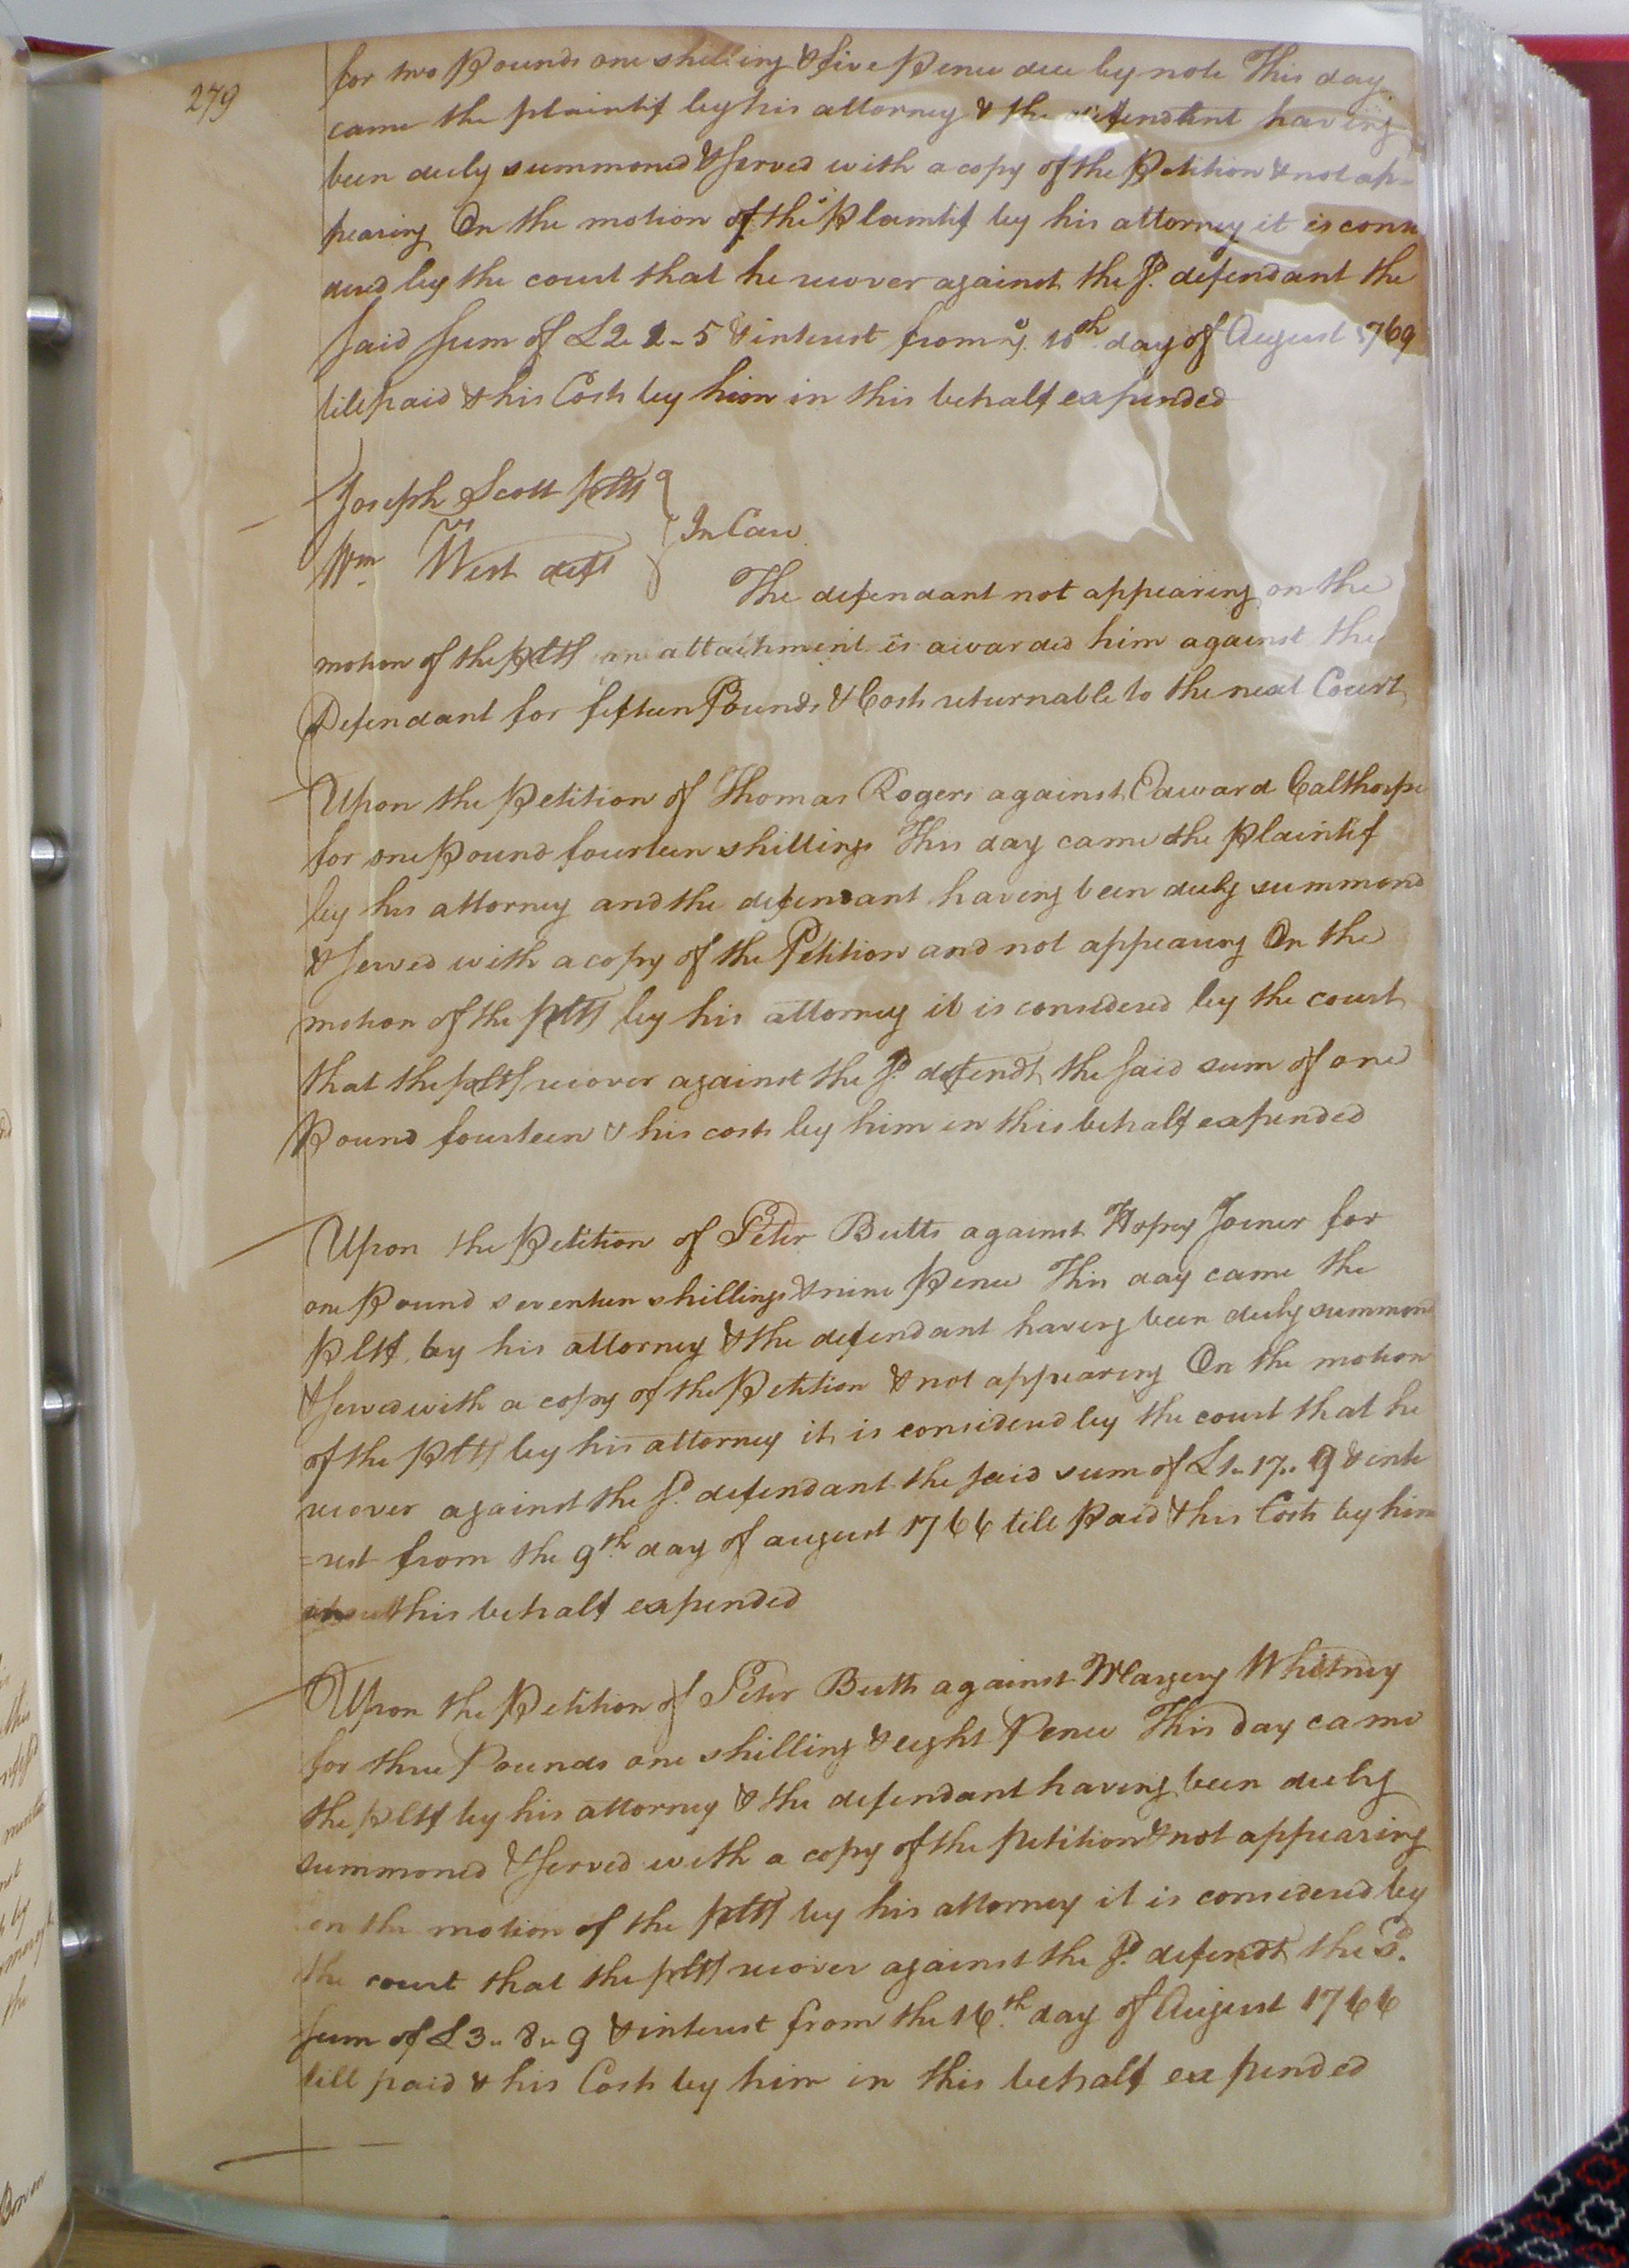 279
for two Pounds one shilling & five Pence due by note This day
came the plaintif by his attorney & the defendant having
been duly summoned & served with a copy of the Petition & not ap=
pearing On the motion of the Plaintif by his attorney it is consi
dered by the court that he recover against the sd. defendant the
said sum of £2. 1 - 5 & interest from ye. 10th day of August 1769
till paid & his Costs by him in this behalf expended
Joseph Scott pltf
vs
In Case
Wm West deft
The defendant not appearing on the
motion of the pltf an attachment is awarded him against the
Defendant for fifteen Pounds & Costs returnable to the next Court
Upon the Petition of Thomas Rogers against Edward Calthorpe
for one Pound fourteen shillings This day came the Plaintif
by his attorney and the defendant having been duly summond
& served with a copy of the Petition and not appearing On the
motion of the pltf by his attorney it is considered by the court
that the pltf recover against the sd. defendt the said sum of one
Pound fourteen & his costs by him in this behalf expended
Upon the Petition of Peter Butts against Hopsy Joiner for
one Pound seventeen shillings & nine Pence This day came the
Pltf by his attorney & the defendant having been duly summond
& served with a copy of the Petition & not appearing On the motion
of the Pltf by his attorney it is considered by the court that he
recover against the sd. defendant the said sum of £1.. 17.. 9 & inte
=rest from the 9th day of august 1766 till Paid & his Costs by him
this behalf expended
Upon the Petition of Peter Butts against Margery Whitney
for three Pounds one shilling & eight Pence This day came
the pltf by his attorney & the defendant having been duly
summoned & served with a copy of the petition & not appearing
on the motion of the pltf by his attorney it is considered by
the court that the pltf recover against the sd. defendt the sd.
sum of £3.. 8.. 9 & interest from the 16th day of August 1766
till paid & his Costs by him in this behalf expended